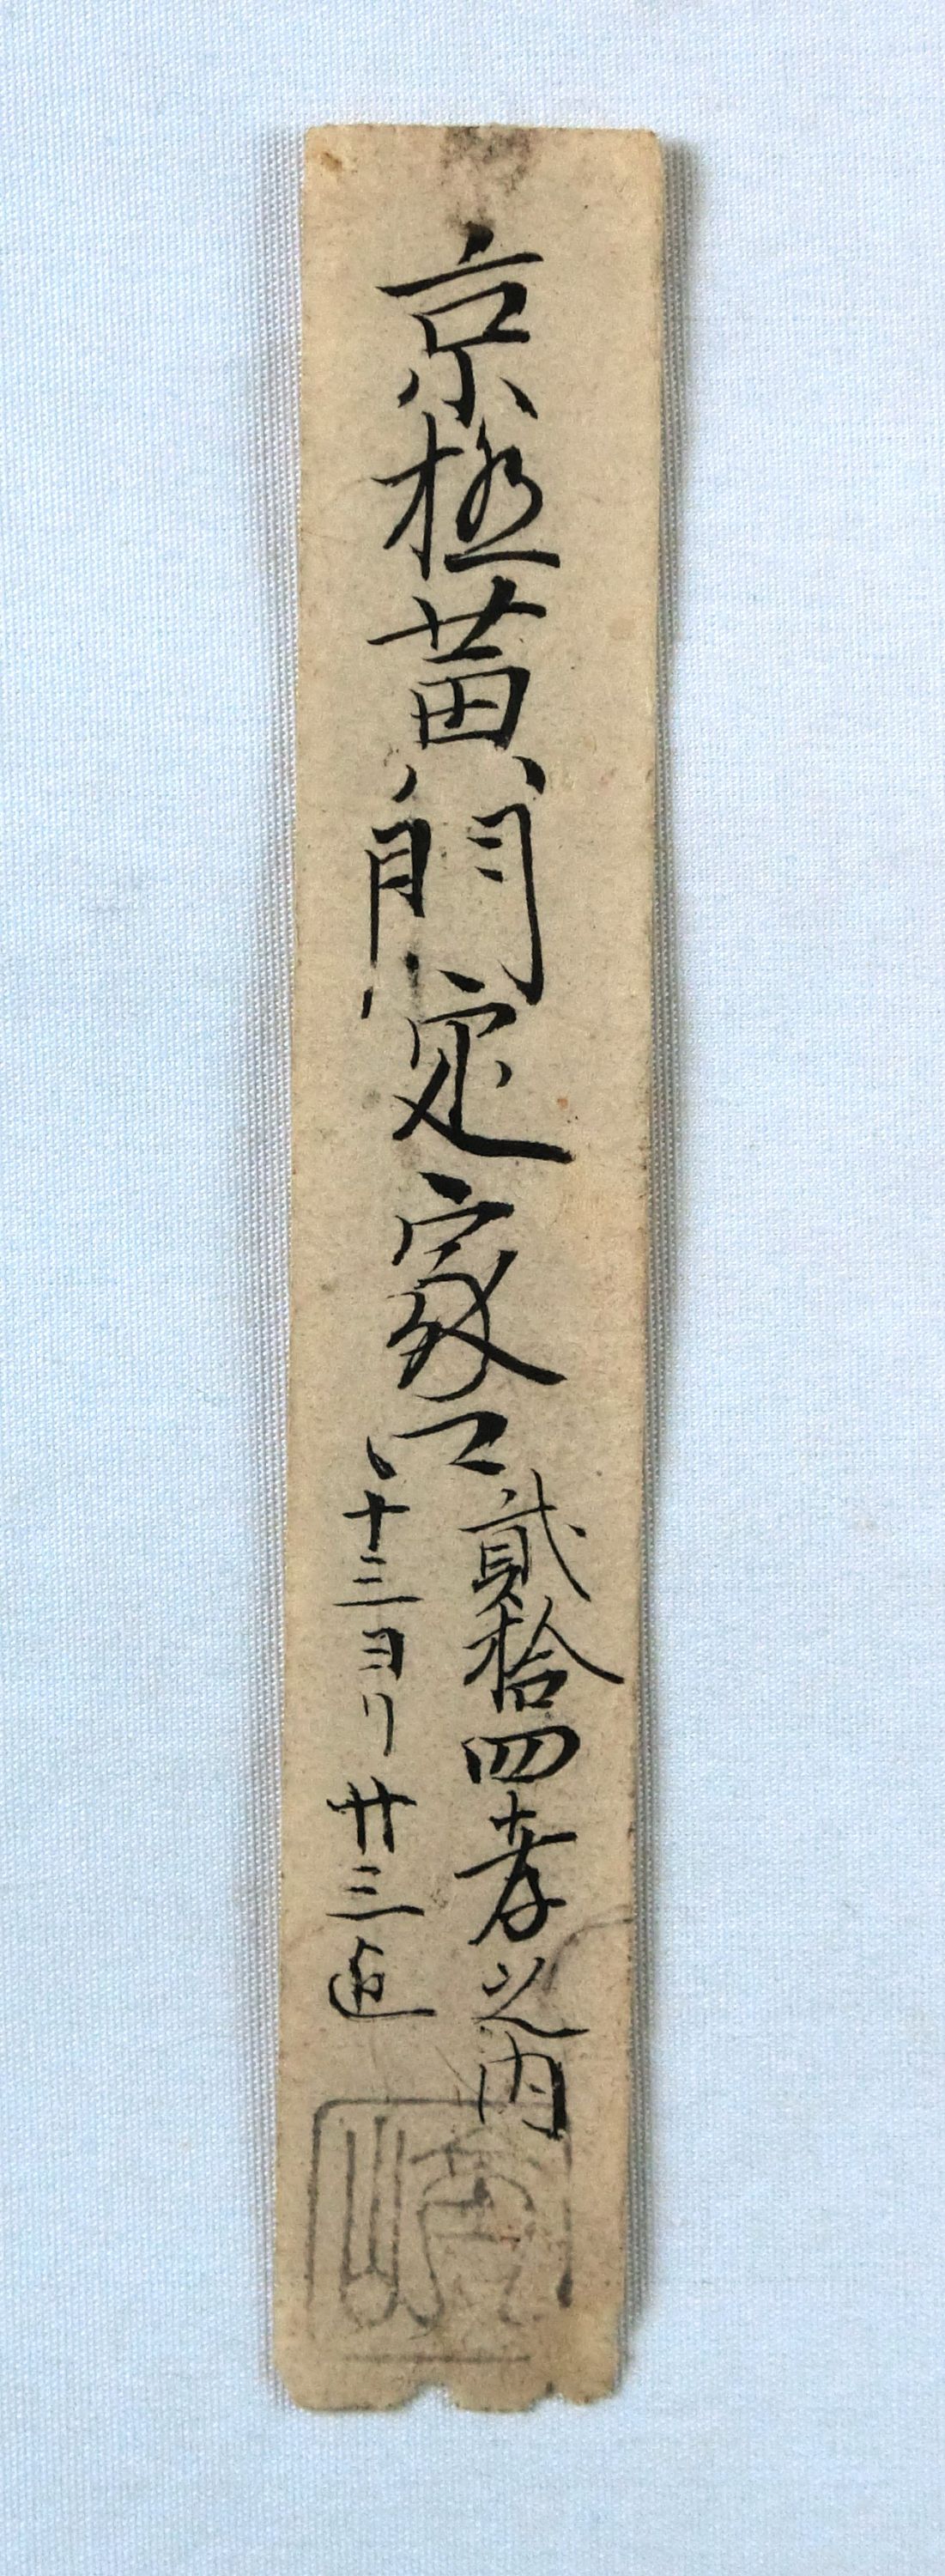 京極黄門定家卿
貳拾四孝之内
十三ヨリ廿三迠